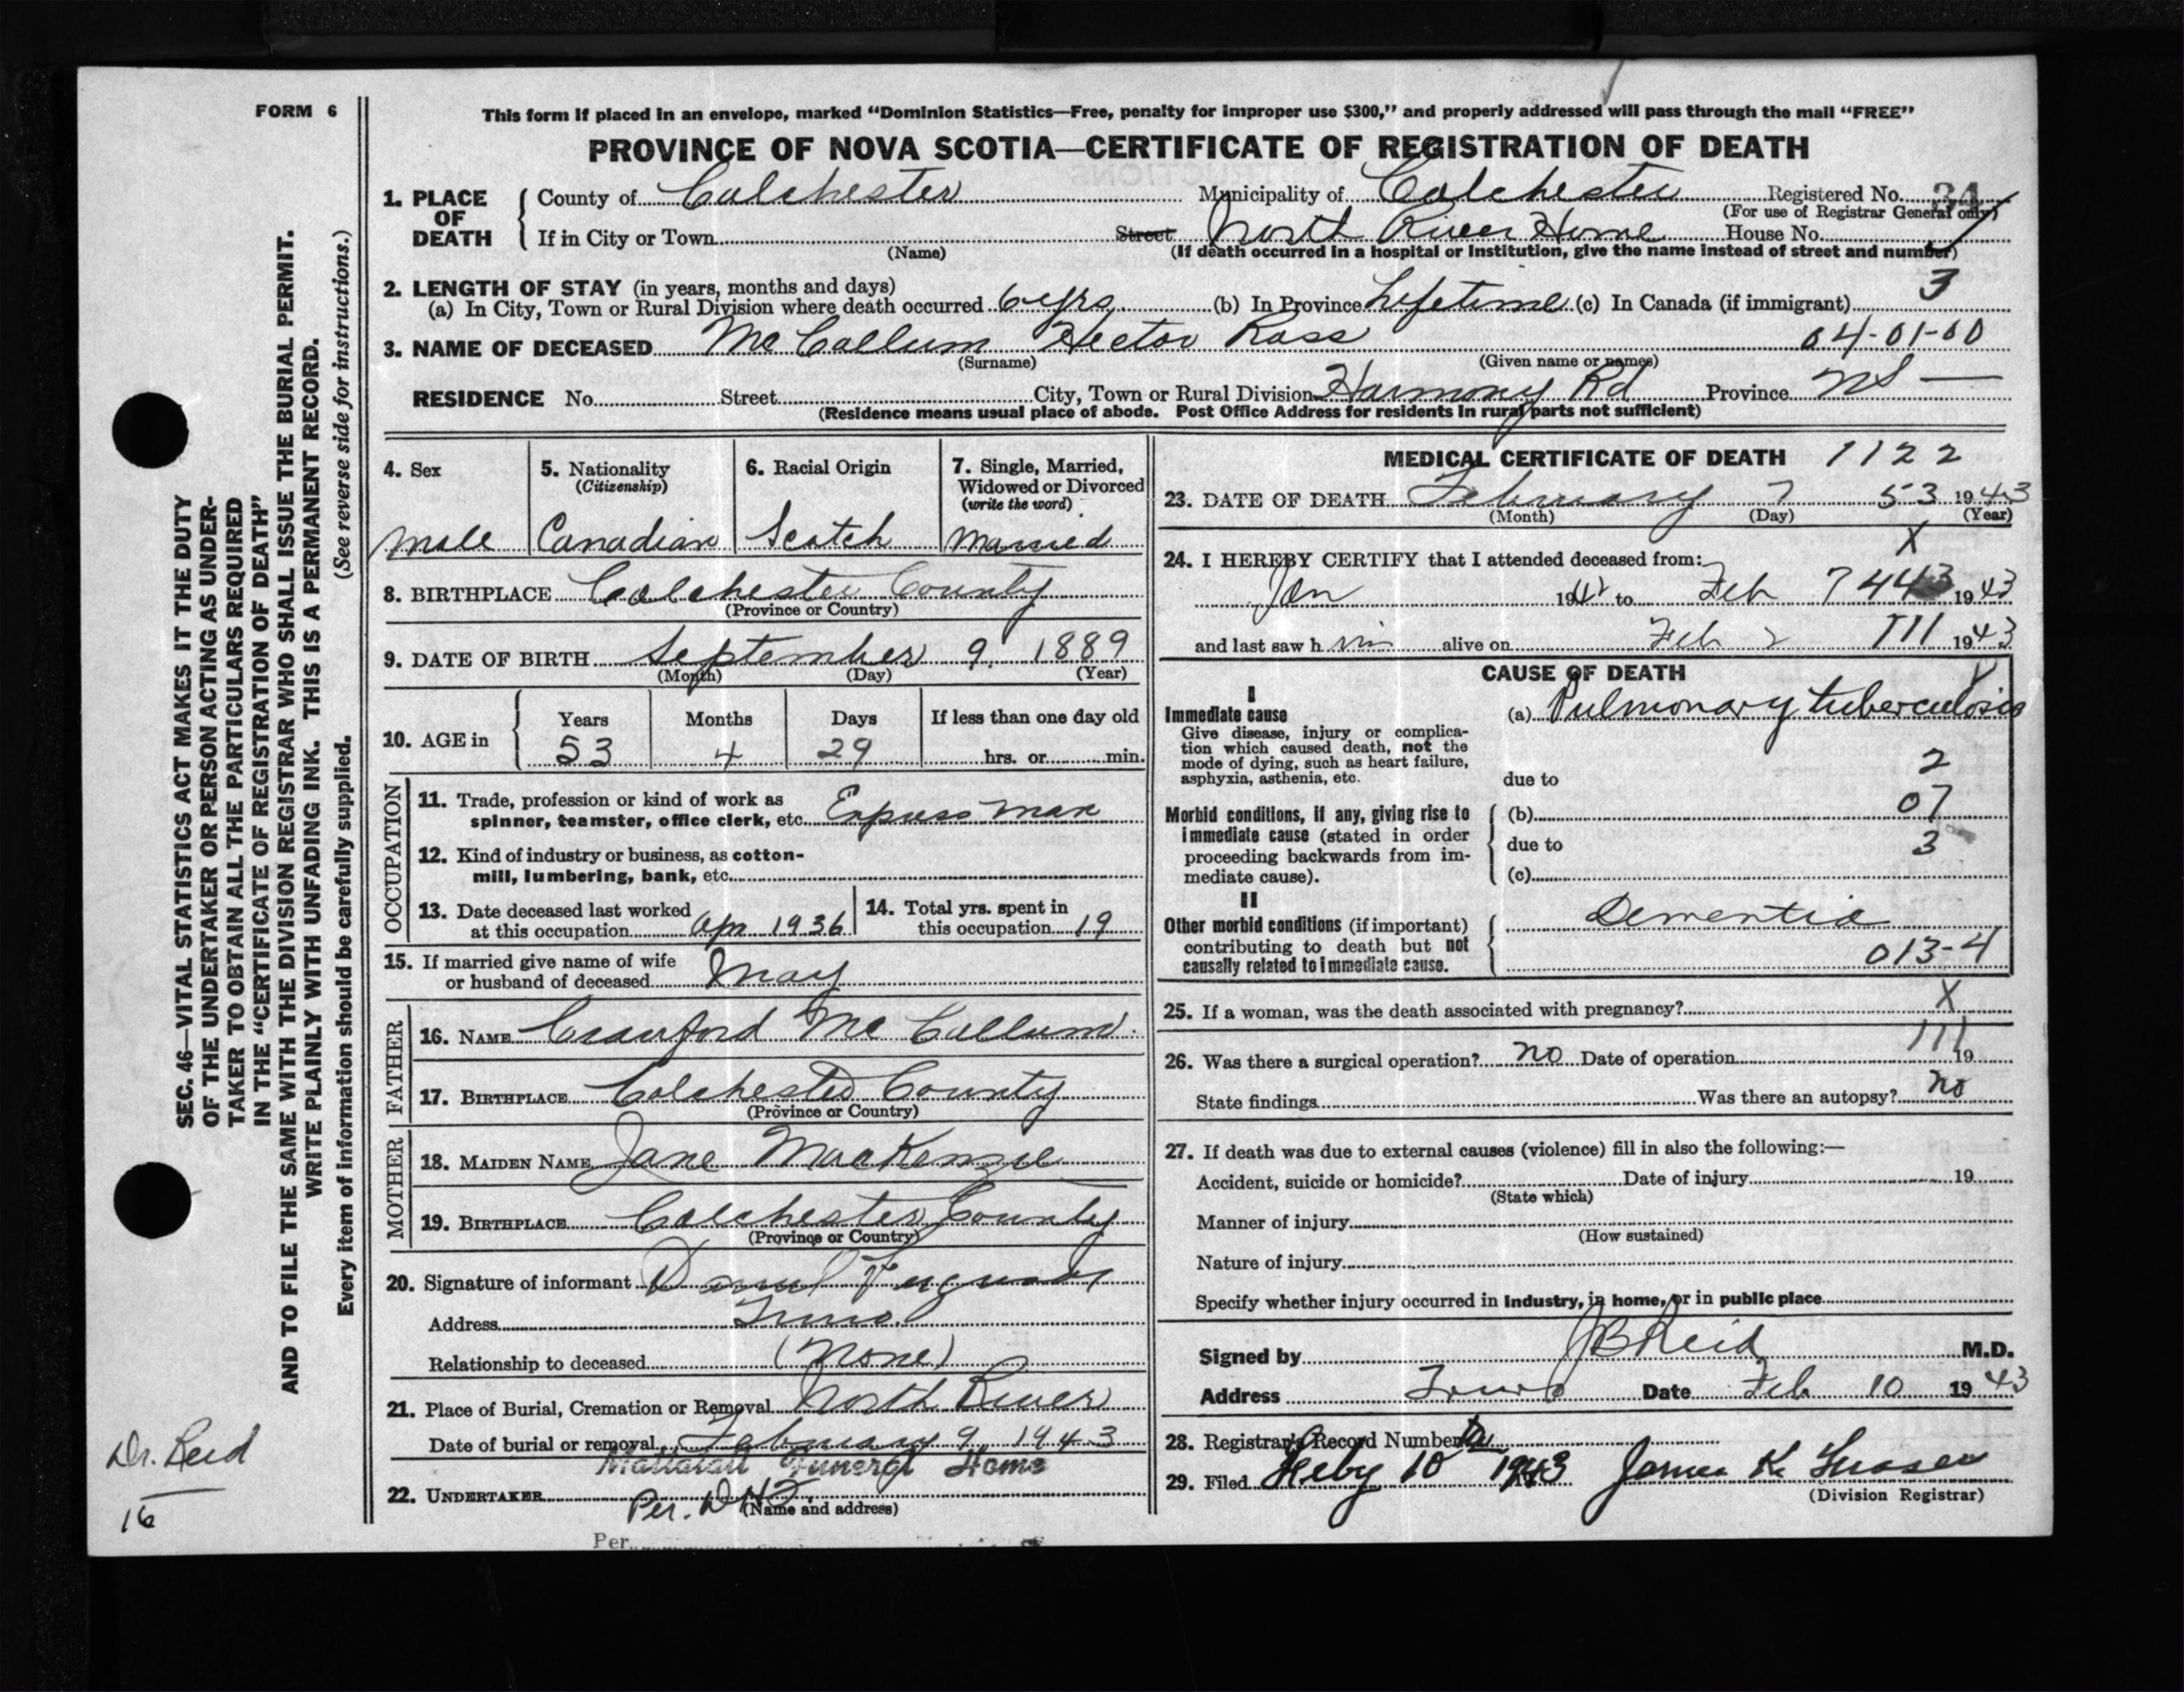 FORM 6
This form if placed in an envelope, marked “Dominion Statistics—Free, penalty for improper use $300,” and properly addressed will pass through the mail “FREE”
PROVINCE OF NOVA SCOTIA—CERTIFICATE OF REGISTRATION OF DEATH
1. PLACE OF DEATH
County of Colchester Municipality of Colchester Registered No. 34
(For use of Registrar General only)
If in City or Town Street North River Home House No.
(Name) (If death occurred in a hospital or institution, give the name instead of street and number)
2. LENGTH OF STAY (in years, months and days) 3
(a) In City, Town or Rural Division where death occurred 6 yrs. (b) In Province Lifetime (c) In Canada (if immigrant)
3. NAME OF DECEASED McCallum Hector Ross 04-01-00
(Surname) (Given name or names)
RESIDENCE No. Street City, Town or Rural Division Harmony Rd Province NS —
(Residence means usual place of abode. Post Office Address for residents in rural parts not sufficient)
4. Sex
Male
5. Nationality
(Citizenship)
Canadian
6. Racial Origin
Scotch
7. Single, Married,
Widowed or Divorced
(write the word)
Married
8. BIRTHPLACE Colchester County
(Province or Country)
9. DATE OF BIRTH September 9, 1889
(Month) (Day) (Year)
10. AGE in
Years Months Days If less than one day old
53 4 29 hrs. or min.
OCCUPATION
11. Trade, profession or kind of work as
spinner, teamster, office clerk, etc. Express man
12. Kind of industry or business, as cotton-
mill, lumbering, bank, etc.
13. Date deceased last worked
at this occupation Apr 1936
14. Total yrs. spent in
this occupation 19
15. If married give name of wife
or husband of deceased May
FATHER
16. NAME Crawford McCallum
17. BIRTHPLACE Colchester County
(Province or Country)
MOTHER
18. MAIDEN NAME Jane MacKenzie
19. BIRTHPLACE Colchester County
(Province or Country)
20. Signature of informant
Address Truro.
Relationship to deceased (None)
21. Place of Burial, Cremation or Removal North River
Date of burial or removal February 9 1943
Funeral Home
22. UNDERTAKER
Per.
(Name and address)
Per
MEDICAL CERTIFICATE OF DEATH 1122
23. DATE OF DEATH February 7 53 1943
(Month) (Day) (Year)
X
24. I HEREBY CERTIFY that I attended deceased from:
Jan 1942 to Feb 7 443 1943
and last saw him alive on Feb 2 111 1943
CAUSE OF DEATH
I
Immediate cause
Give disease, injury or complica-
tion which caused death, not the
mode of dying, such as heart failure,
asphyxia, asthenia, etc.
(a) Pulmonary tuberculosis
2
due to
Morbid conditions, if any, giving rise to
immediate cause (stated in order
proceeding backwards from im-
mediate cause).
(b) 07
due to 3
(c)
II
Other morbid conditions (if important)
contributing to death but not
causally related to immediate cause.
Dementia
013-4
25. If a woman, was the death associated with pregnancy? X
111
26. Was there a surgical operation? no Date of operation 19
State findings Was there an autopsy? no
27. If death was due to external causes (violence) fill in also the following:—
Accident, suicide or homicide? Date of injury 19
(State which)
Manner of injury
(How sustained)
Nature of injury
Specify whether injury occurred in industry, in home, or in public place
Signed by JB Reid M.D.
Address Truro Date Feb 10 1943
28. Registrar's Record Number
29. Filed Feby 10 1943 James K. Fraser
(Division Registrar)
SEC. 46—VITAL STATISTICS ACT MAKES IT THE DUTY
OF THE UNDERTAKER OR PERSON ACTING AS UNDER-
TAKER TO OBTAIN ALL THE PARTICULARS REQUIRED
IN THE “CERTIFICATE OF REGISTRATION OF DEATH”
AND TO FILE THE SAME WITH THE DIVISION REGISTRAR WHO SHALL ISSUE THE BURIAL PERMIT.
WRITE PLAINLY WITH UNFADING INK. THIS IS A PERMANENT RECORD.
Every item of information should be carefully supplied. (See reverse side for instructions.)
Dr. Reid
16